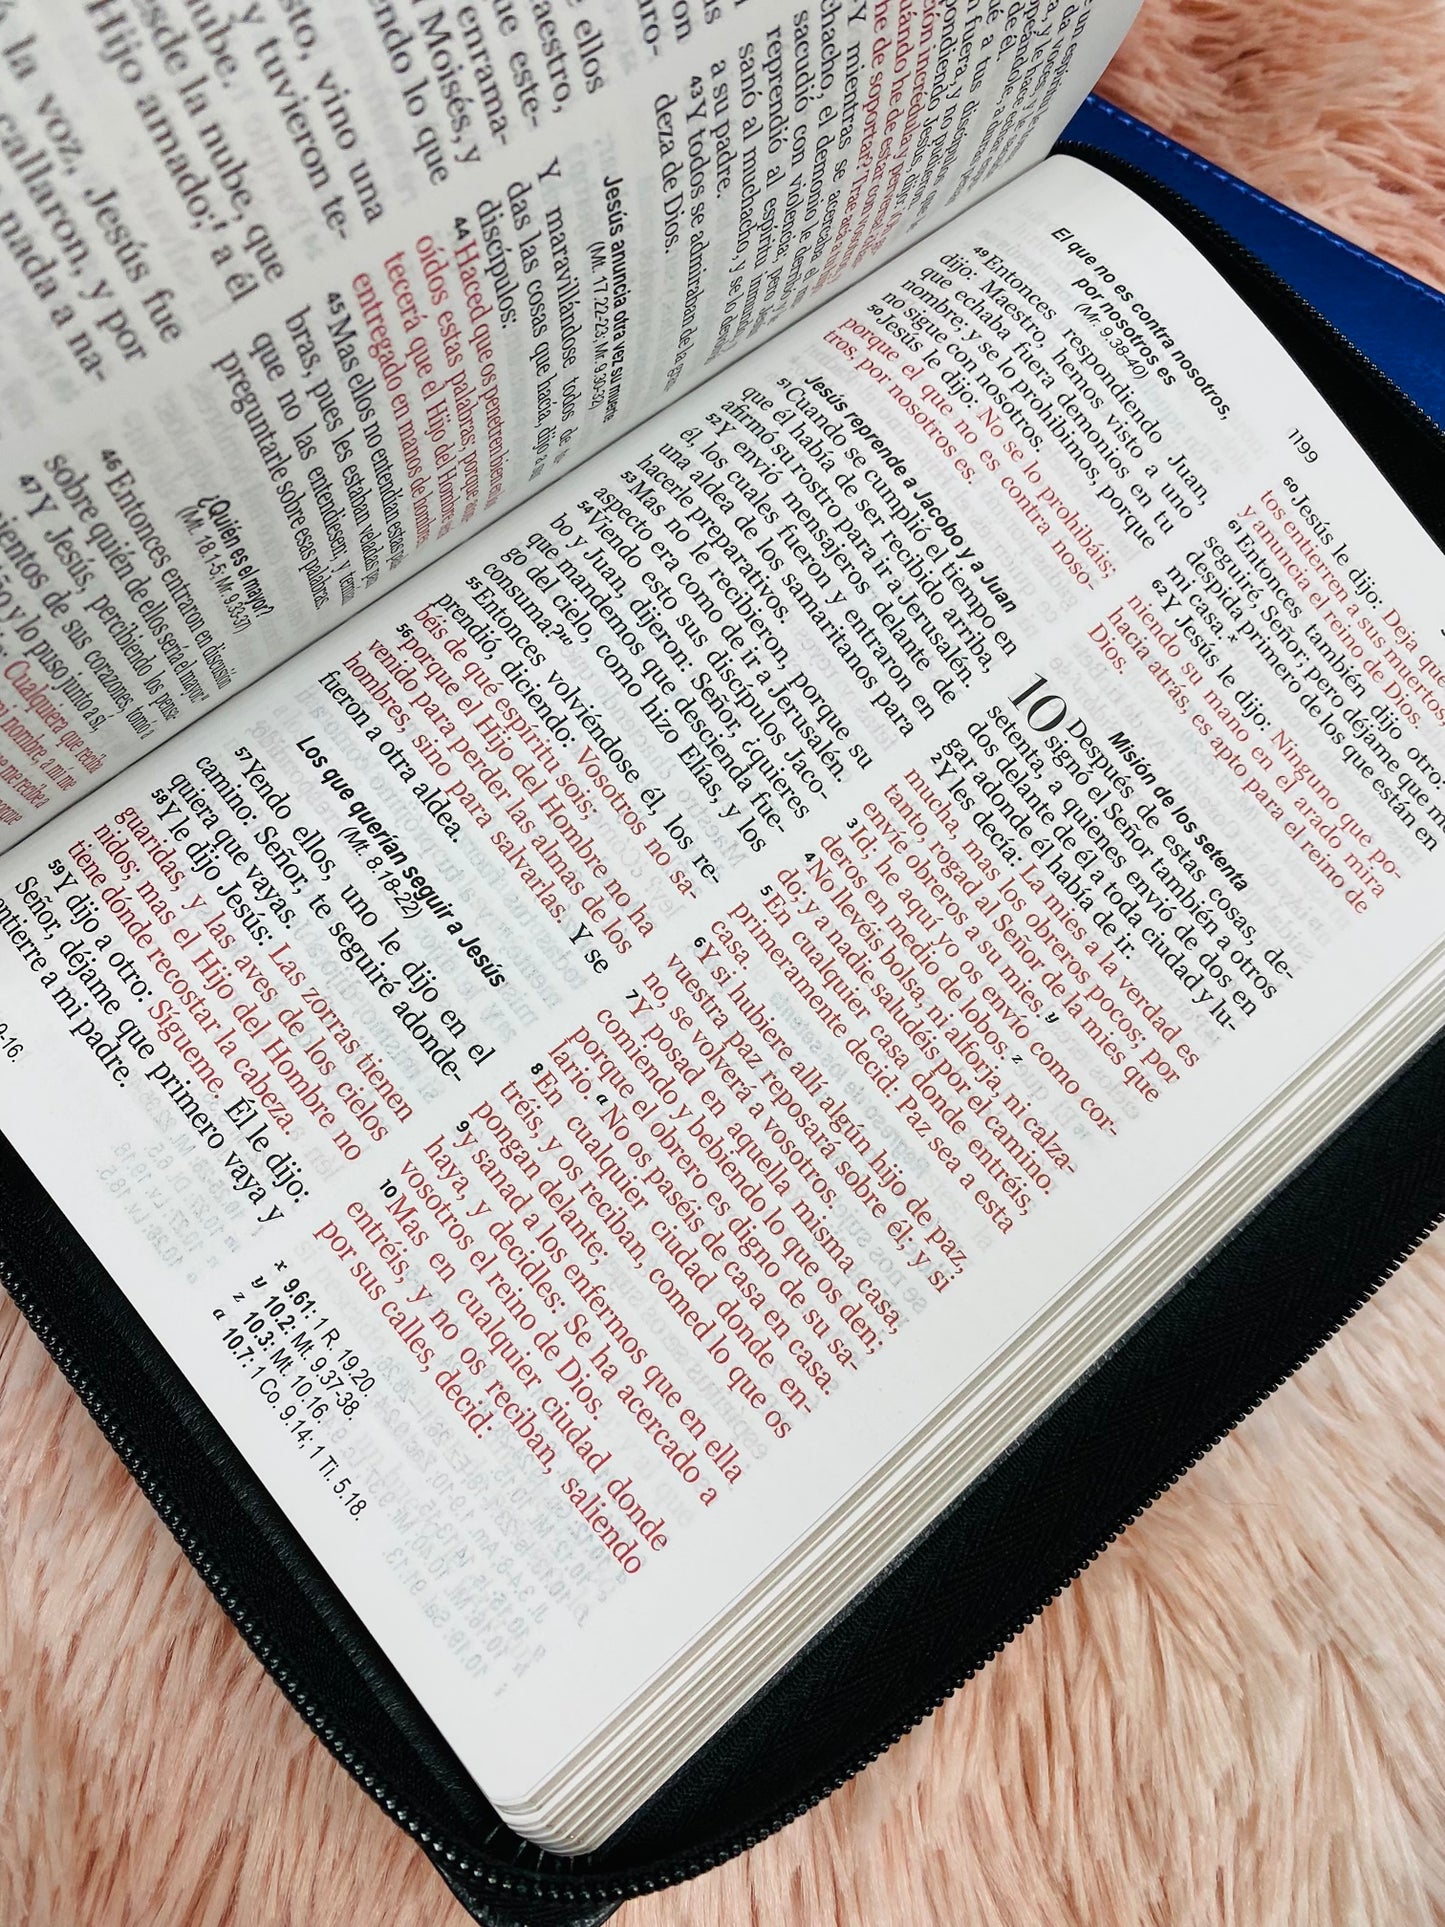 ellos
aestro,
que este-
enrama-
Moisés, y
endo lo que
sto, vino una
y tuvieron te-
nube.
esde la nube, que
Hijo amado; a él
la voz, Jesús fue
callaron, y por
nada a na-
Y mientras se acercaba el
chacho, el demonio le derribó y
sacudió con violencia; pero Jesús
reprendió al espíritu inmundo, y
sanó al muchacho, y se lo devolvió
a su padre.
43 Y todos se admiraban de la gran-
deza de Dios.
Jesús anuncia otra vez su muerte
(Mt. 17.22-23; Mr. 9.30-32)
Y maravillándose todos de to-
das las cosas que hacía, dijo a sus
discípulos:
44 Haced que os penetren bien en los
oídos estas palabras; porque acon-
tecerá que el Hijo del Hombre será
entregado en manos de hombres.
45 Mas ellos no entendían estas pala-
bras, pues les estaban veladas para
que no las entendiesen; y temían
preguntarle sobre esas palabras.
¿Quién es el mayor?
(Mt. 18.1-5; Mr. 9.33-37)
46 Entonces entraron en discusión
sobre quién de ellos sería el mayor.
47 Y Jesús, percibiendo los pensa-
mientos de sus corazones, tomó a
y lo puso junto a sí,
Cualquiera que reciba
mi nombre, a mí me
que me recibe a
1199
El que no es contra nosotros,
por nosotros es
(Mr. 9.38-40)
49 Entonces respondiendo Juan,
dijo: Maestro, hemos visto a uno
que echaba fuera demonios en tu
nombre; y se lo prohibimos, porque
no sigue con nosotros.
50 Jesús le dijo: No se lo prohibáis;
porque el que no es contra noso-
tros, por nosotros es.
Jesús reprende a Jacobo y a Juan
51 Cuando se cumplió el tiempo en
que él había de ser recibido arriba,
afirmó su rostro para ir a Jerusalén.
52 Y envió mensajeros delante de
él, los cuales fueron y entraron en
una aldea de los samaritanos para
hacerle preparativos.
53 Mas no le recibieron, porque su
aspecto era como de ir a Jerusalén.
54 Viendo esto sus discípulos Jaco-
bo y Juan, dijeron: Señor, ¿quieres
que mandemos que descienda fue-
go del cielo, como hizo Elías, y los
consuma? w
55 Entonces volviéndose él, los re-
prendió, diciendo: Vosotros no sa-
béis de qué espíritu sois;
56 porque el Hijo del Hombre no ha
venido para perder las almas de los
hombres, sino para salvarlas. Y se
fueron a otra aldea.
Los que querían seguir a Jesús
(Mt. 8.18-22)
57 Yendo ellos, uno le dijo en el
camino: Señor, te seguiré adonde-
quiera que vayas.
58 Y le dijo Jesús: Las zorras tienen
guaridas, y las aves de los cielos
nidos; mas el Hijo del Hombre no
tiene dónde recostar la cabeza.
59 Y dijo a otro: Sígueme. Él le dijo:
Señor, déjame que primero vaya y
entierre a mi padre.
60 Jesús le dijo: Deja que
tos entierren a sus muertos;
y anuncia el reino de Dios.
61 Entonces también dijo otro:
seguiré, Señor; pero déjame que m
despida primero de los que están en
mi casa. x
62 Y Jesús le dijo: Ninguno que po-
niendo su mano en el arado mira
hacia atrás, es apto para el reino de
Dios.
Misión de los setenta
10 Después de estas cosas, de-
signó el Señor también a otros
setenta, a quienes envió de dos en
dos delante de él a toda ciudad y lu-
gar adonde él había de ir.
2 Y les decía: La mies a la verdad es
mucha, mas los obreros pocos; por
tanto, rogad al Señor de la mies que
envíe obreros a su mies. y
3 Id; he aquí yo os envío como cor-
deros en medio de lobos. z
4 No llevéis bolsa, ni alforja, ni calza-
do; y a nadie saludéis por el camino.
5 En cualquier casa donde entréis,
primeramente decid: Paz sea a esta
casa.
6 Y si hubiere allí algún hijo de paz,
vuestra paz reposará sobre él; y si
no, se volverá a vosotros.
7 Y posad en aquella misma casa,
comiendo y bebiendo lo que os den;
porque el obrero es digno de su sa-
lario. a No os paséis de casa en casa.
8 En cualquier ciudad donde en-
tréis, y os reciban, comed lo que os
pongan delante;
9 y sanad a los enfermos que en ella
haya, y decidles: Se ha acercado a
vosotros el reino de Dios.
10 Mas en cualquier ciudad donde
entréis, y no os reciban, saliendo
por sus calles, decid:
x 9.61: 1 R. 19.20.
y 10.2: Mt. 9.37-38.
z 10.3: Mt. 10.16.
a 10.7: 1 Co. 9.14; 1 Ti. 5.18.